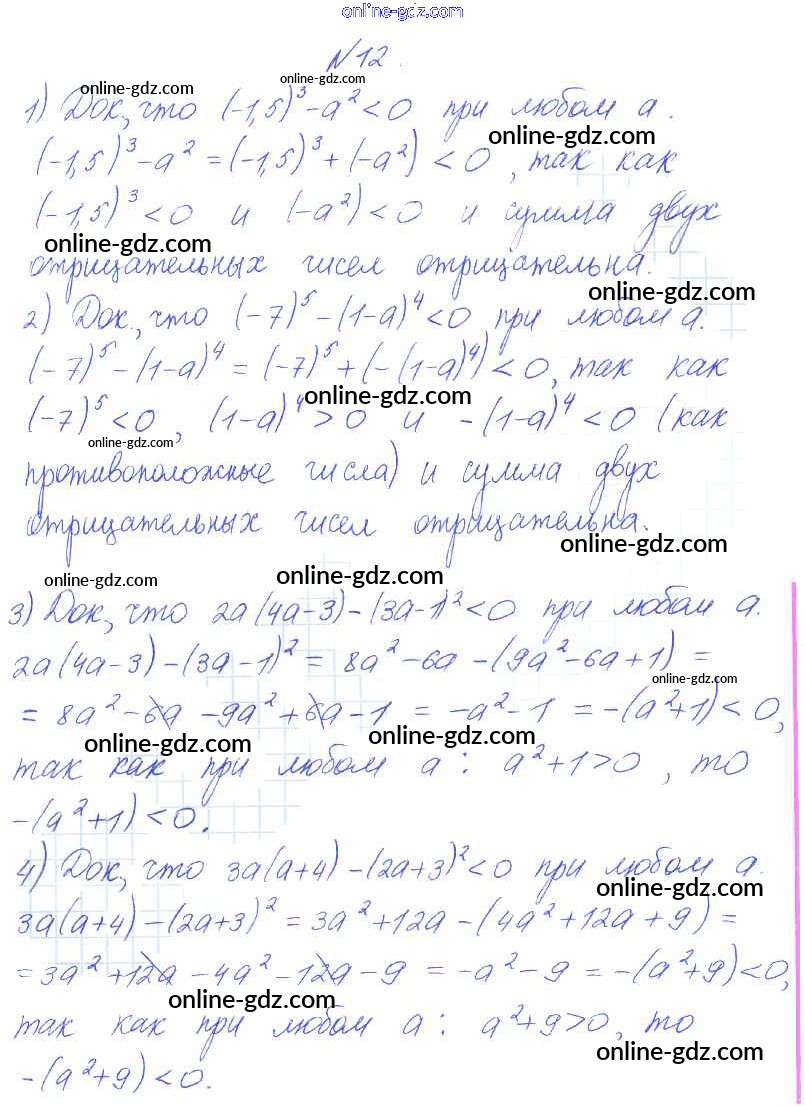 online-gdz.com
N 12.
online-gdz.com online-gdz.com
1) Док, что (-1,5)³-a²<0 при любом a.
online-gdz.com
(-1,5)³-a² = (-1,5)³+(-a²) < 0, так как
(-1,5)³<0 и (-a²)<0 и сумма двух
online-gdz.com
отрицательных чисел отрицательна.
online-gdz.com
2) Док, что (-7)⁵-(1-a)⁴<0 при любом a.
(-7)⁵-(1-a)⁴ = (-7)⁵+(-(1-a)⁴)<0, так как
online-gdz.com
(-7)⁵<0, (1-a)⁴>0 и -(1-a)⁴<0 (как
online-gdz.com
противоположные числа) и сумма двух
отрицательных чисел отрицательна.
online-gdz.com
online-gdz.com online-gdz.com
3) Док, что 2a(4a-3)-(3a-1)²<0 при любом a.
2a(4a-3)-(3a-1)² = 8a²-6a-(9a²-6a+1) =
online-gdz.com
= 8a²-6a-9a²+6a-1 = -a²-1 = -(a²+1)<0,
online-gdz.com online-gdz.com
так как при любом a: a²+1>0, то
-(a²+1)<0.
4) Док, что 3a(a+4)-(2a+3)²<0 при любом a.
online-gdz.com
3a(a+4)-(2a+3)² = 3a²+12a-(4a²+12a+9) =
= 3a²+12a-4a²-12a-9 = -a²-9 = -(a²+9)<0,
online-gdz.com
так как при любом a: a²+9>0, то
online-gdz.com
-(a²+9)<0.